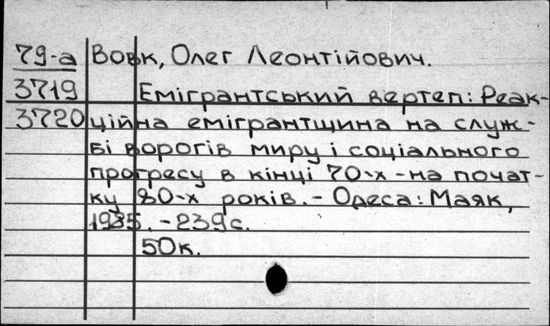 79-а Вовк, Олег Леонтійович.
3719 Емігрантський вертеп: Реак-
3720 ційна емігрантщина на служ-
бі ворогів миру і соціального
прогресу в кінці 70-х - на почат-
ку 80-х років. - Одеса: Маяк,
1985. - 239с.
50к.